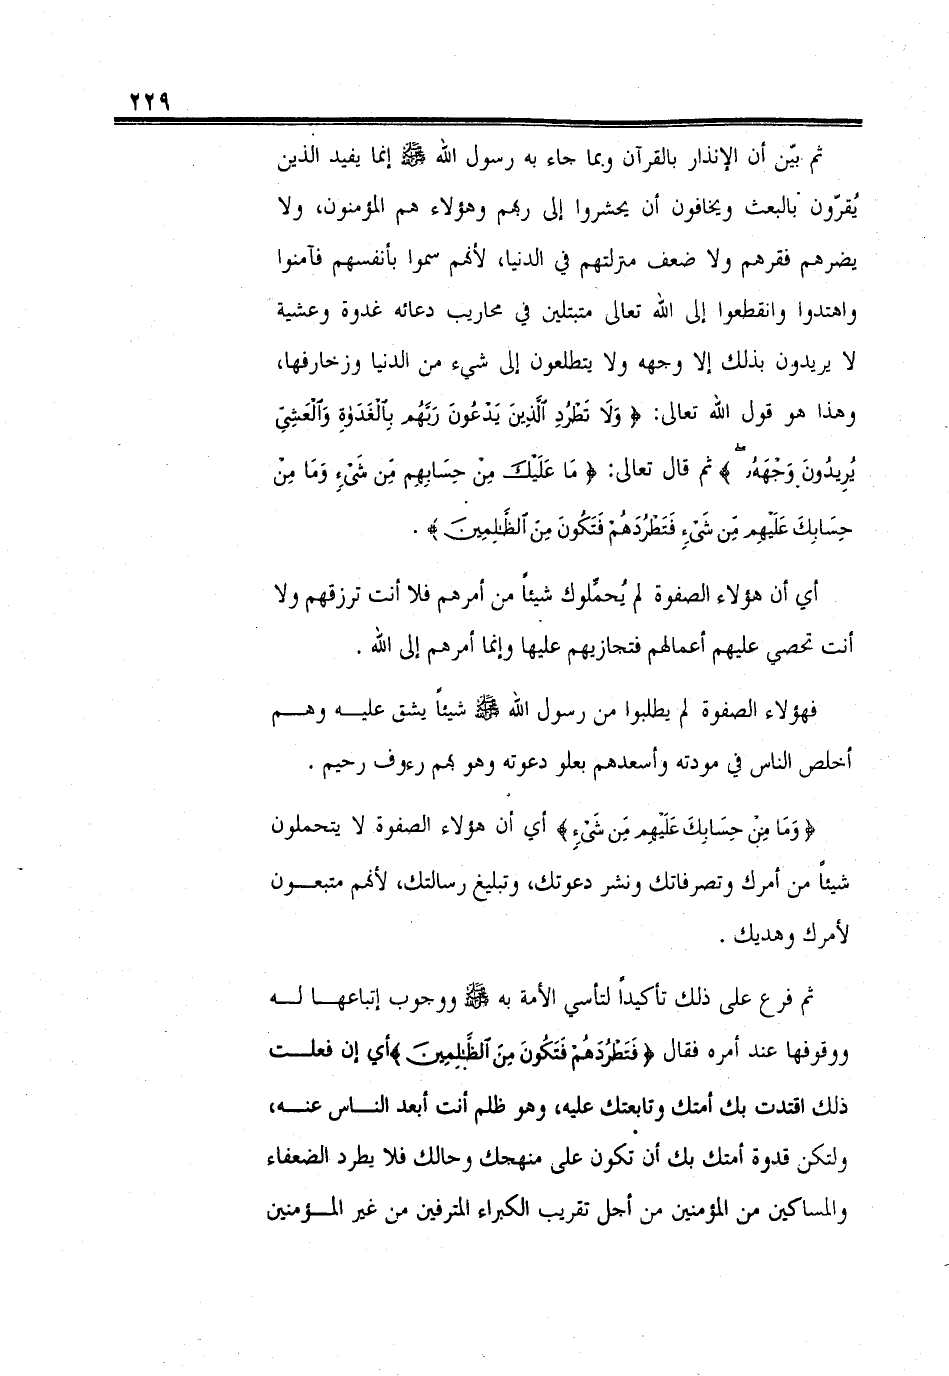 ٢٢٩
ثم بيّن أن الإنذار بالقرآن وبما جاء به رسول الله ﷺ إنما يفيد الذين
يُقرّون بالبعث ويخافون أن يحشروا إلى ربهم وهؤلاء هم المؤمنون، ولا
يضرهم فقرهم ولا ضعف منزلتهم في الدنيا، لأنهم سموا بأنفسهم فآمنوا
واهتدوا وانقطعوا إلى الله تعالى متبتلين في محاريب دعائه غدوة وعشية
لا يريدون بذلك إلا وجهه ولا يتطلعون إلى شيء من الدنيا وزخارفها،
وهذا هو قول الله تعالى: ﴿ وَلَا تَطْرُدِ ٱلَّذِينَ يَدْعُونَ رَبَّهُم بِٱلْغَدَوٰةِ وَٱلْعَشِيِّ
يُرِيدُونَ وَجْهَهُۥ ۖ ﴾ ثم قال تعالى: ﴿ مَا عَلَيْكَ مِنْ حِسَابِهِم مِّن شَىْءٍ وَمَا مِنْ
حِسَابِكَ عَلَيْهِم مِّن شَىْءٍ فَتَطْرُدَهُمْ فَتَكُونَ مِنَ ٱلظَّٰلِمِينَ ﴾ .
أي أن هؤلاء الصفوة لم يُحمَّلوك شيئاً من أمرهم فلا أنت ترزقهم ولا
أنت تحصي عليهم أعمالهم فتجازيهم عليها وإنما أمرهم إلى الله .
فهؤلاء الصفوة لم يطلبوا من رسول الله ﷺ شيئاً يشق عليه وهم
أخلص الناس في مودته وأسعدهم بعلو دعوته وهو بهم رءوف رحيم .
﴿ وَمَا مِنْ حِسَابِكَ عَلَيْهِم مِّن شَىْءٍ ﴾ أي أن هؤلاء الصفوة لا يتحملون
شيئاً من أمرك وتصرفاتك ونشر دعوتك، وتبليغ رسالتك، لأنهم متبعون
لأمرك وهديك .
ثم فرع على ذلك تأكيداً لتأسي الأمة به ﷺ ووجوب إتباعها له
ووقوفها عند أمره فقال ﴿ فَتَطْرُدَهُمْ فَتَكُونَ مِنَ ٱلظَّٰلِمِينَ ﴾أي إن فعلت
ذلك اقتدت بك أمتك وتابعتك عليه، وهو ظلم أنت أبعد الناس عنه،
ولتكن قدوة أمتك بك أن تكون على منهجك وحالك فلا يطرد الضعفاء
والمساكين من المؤمنين من أجل تقريب الكبراء المترفين من غير المؤمنين